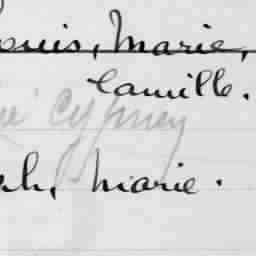 ouis, Marie,
Camille.
Cypney
h, Marie.